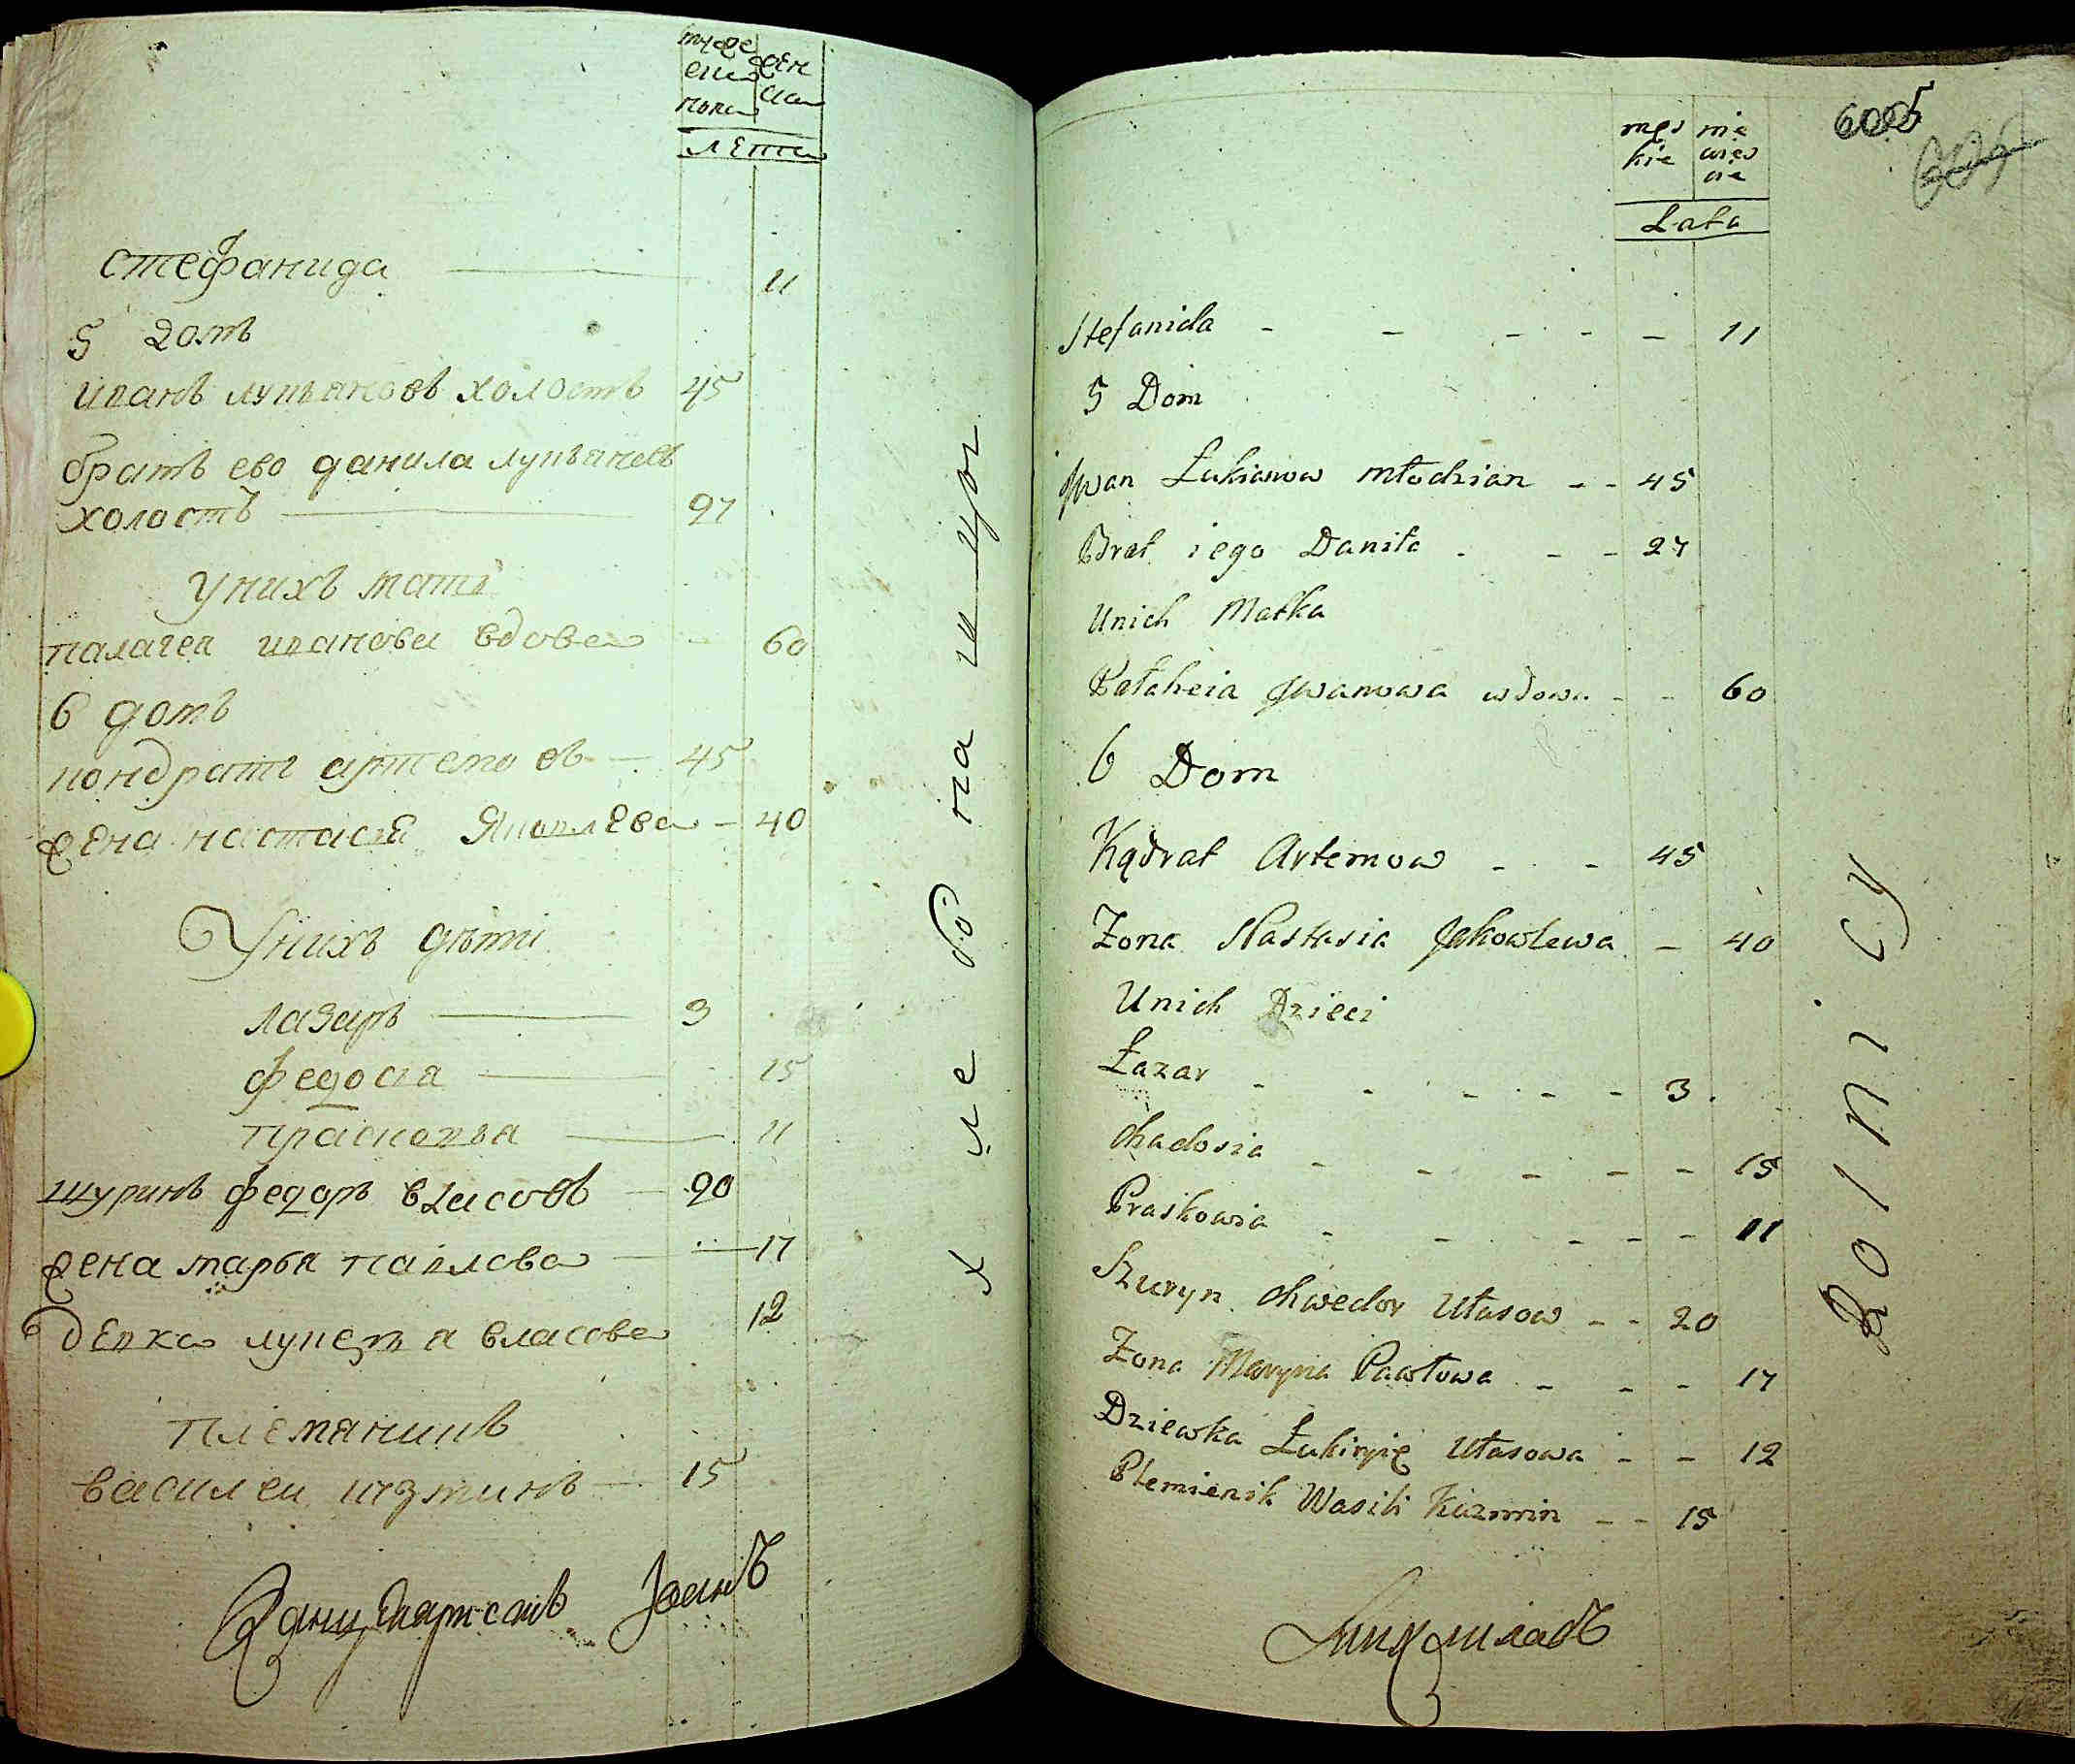 муже жен
ска ска
пола
лета
стефанида 11
5 домъ
иванъ лукьяновъ холостъ 45
братъ ево данила лукьяновъ
холостъ 27
Унихъ мать
палагея иванова вдова 60
6 домъ
кондратъ артемовъ 45
жена настасья яковлева 40
Унихъ дѣти
лазаръ 3
федосия 15
прасковья 11
шуринъ федоръ власовъ 20
жена марья павлова 17
девка лукерья власова 12
племяникъ
василеи кузминъ 15
хлебопашцог
męs nie
kie wies
cie
Lata
6005
Stefanida - - - - - 11
5 Dom
Jwan Łukianow młodzian - - 45
Brat iego Daniła - - - 27
Unich Matka
Pałaheia Jwanowa wdowa - - 60
6 Dom
Kądrat Artemow - - 45
Zona Nastasia Jakowlewa - 40
Unich Dzieci
Łazar - - - - - 3
Chadosia - - - - - 15
Praskowia - - - - - 11
Szuryn Chwedor Ułasow - - 20
Zona Maryna Pawłowa - - - 17
Dziewka Łukiryię Ułasowa - - 12
Plemienik Wasili Kuzmin - - 15
Rolnicy
Іоанъ